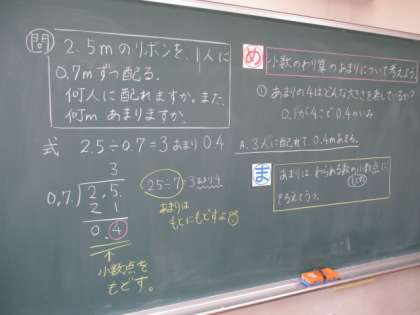 問 2.5mのリボンを、1人に
0.7mずつ配る。
何人に配れますか。また、
何mあまりますか。
式 2.5÷0.7=3あまり0.4
3
0.7)2.5.
2 1
0.4
小数点を
もどす。
25÷7=3あまり4
あまりは
もとにもどすよ
め 小数のわり算のあまりについて考えよう
① あまりの4はどんな大きさを表しているか?
0.1が4こで0.4
A. 3人に配れて0.4mあまる。
ま あまりは、わられる数の小数点に
そろえてうつ。